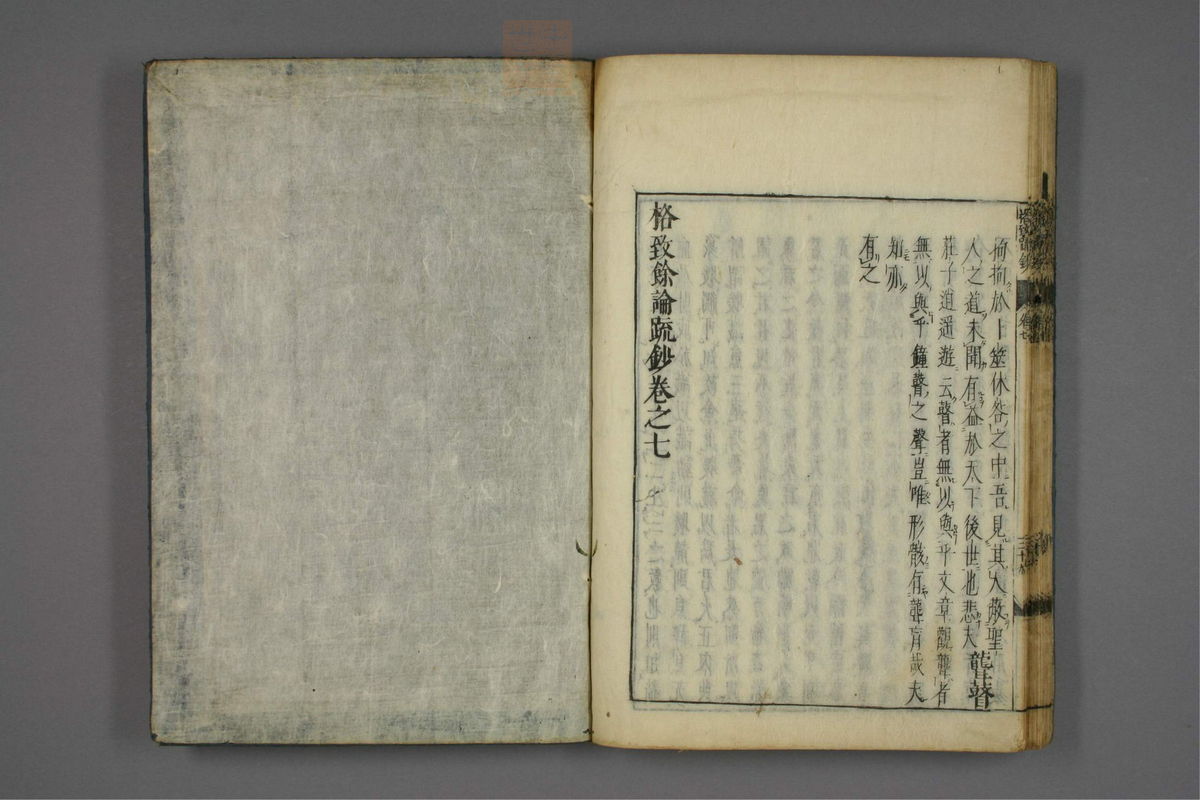 拘拘於卜筮休咎之中吾見其大蔽聖
人之道未聞有益於天下後世也悲夫聾瞽
莊子逍遥遊云瞽者無以與乎文章觀聾者
無以與乎鐘鼓之聲豈唯形骸有聾盲哉夫
知亦
有之
格致餘論疏鈔卷之七